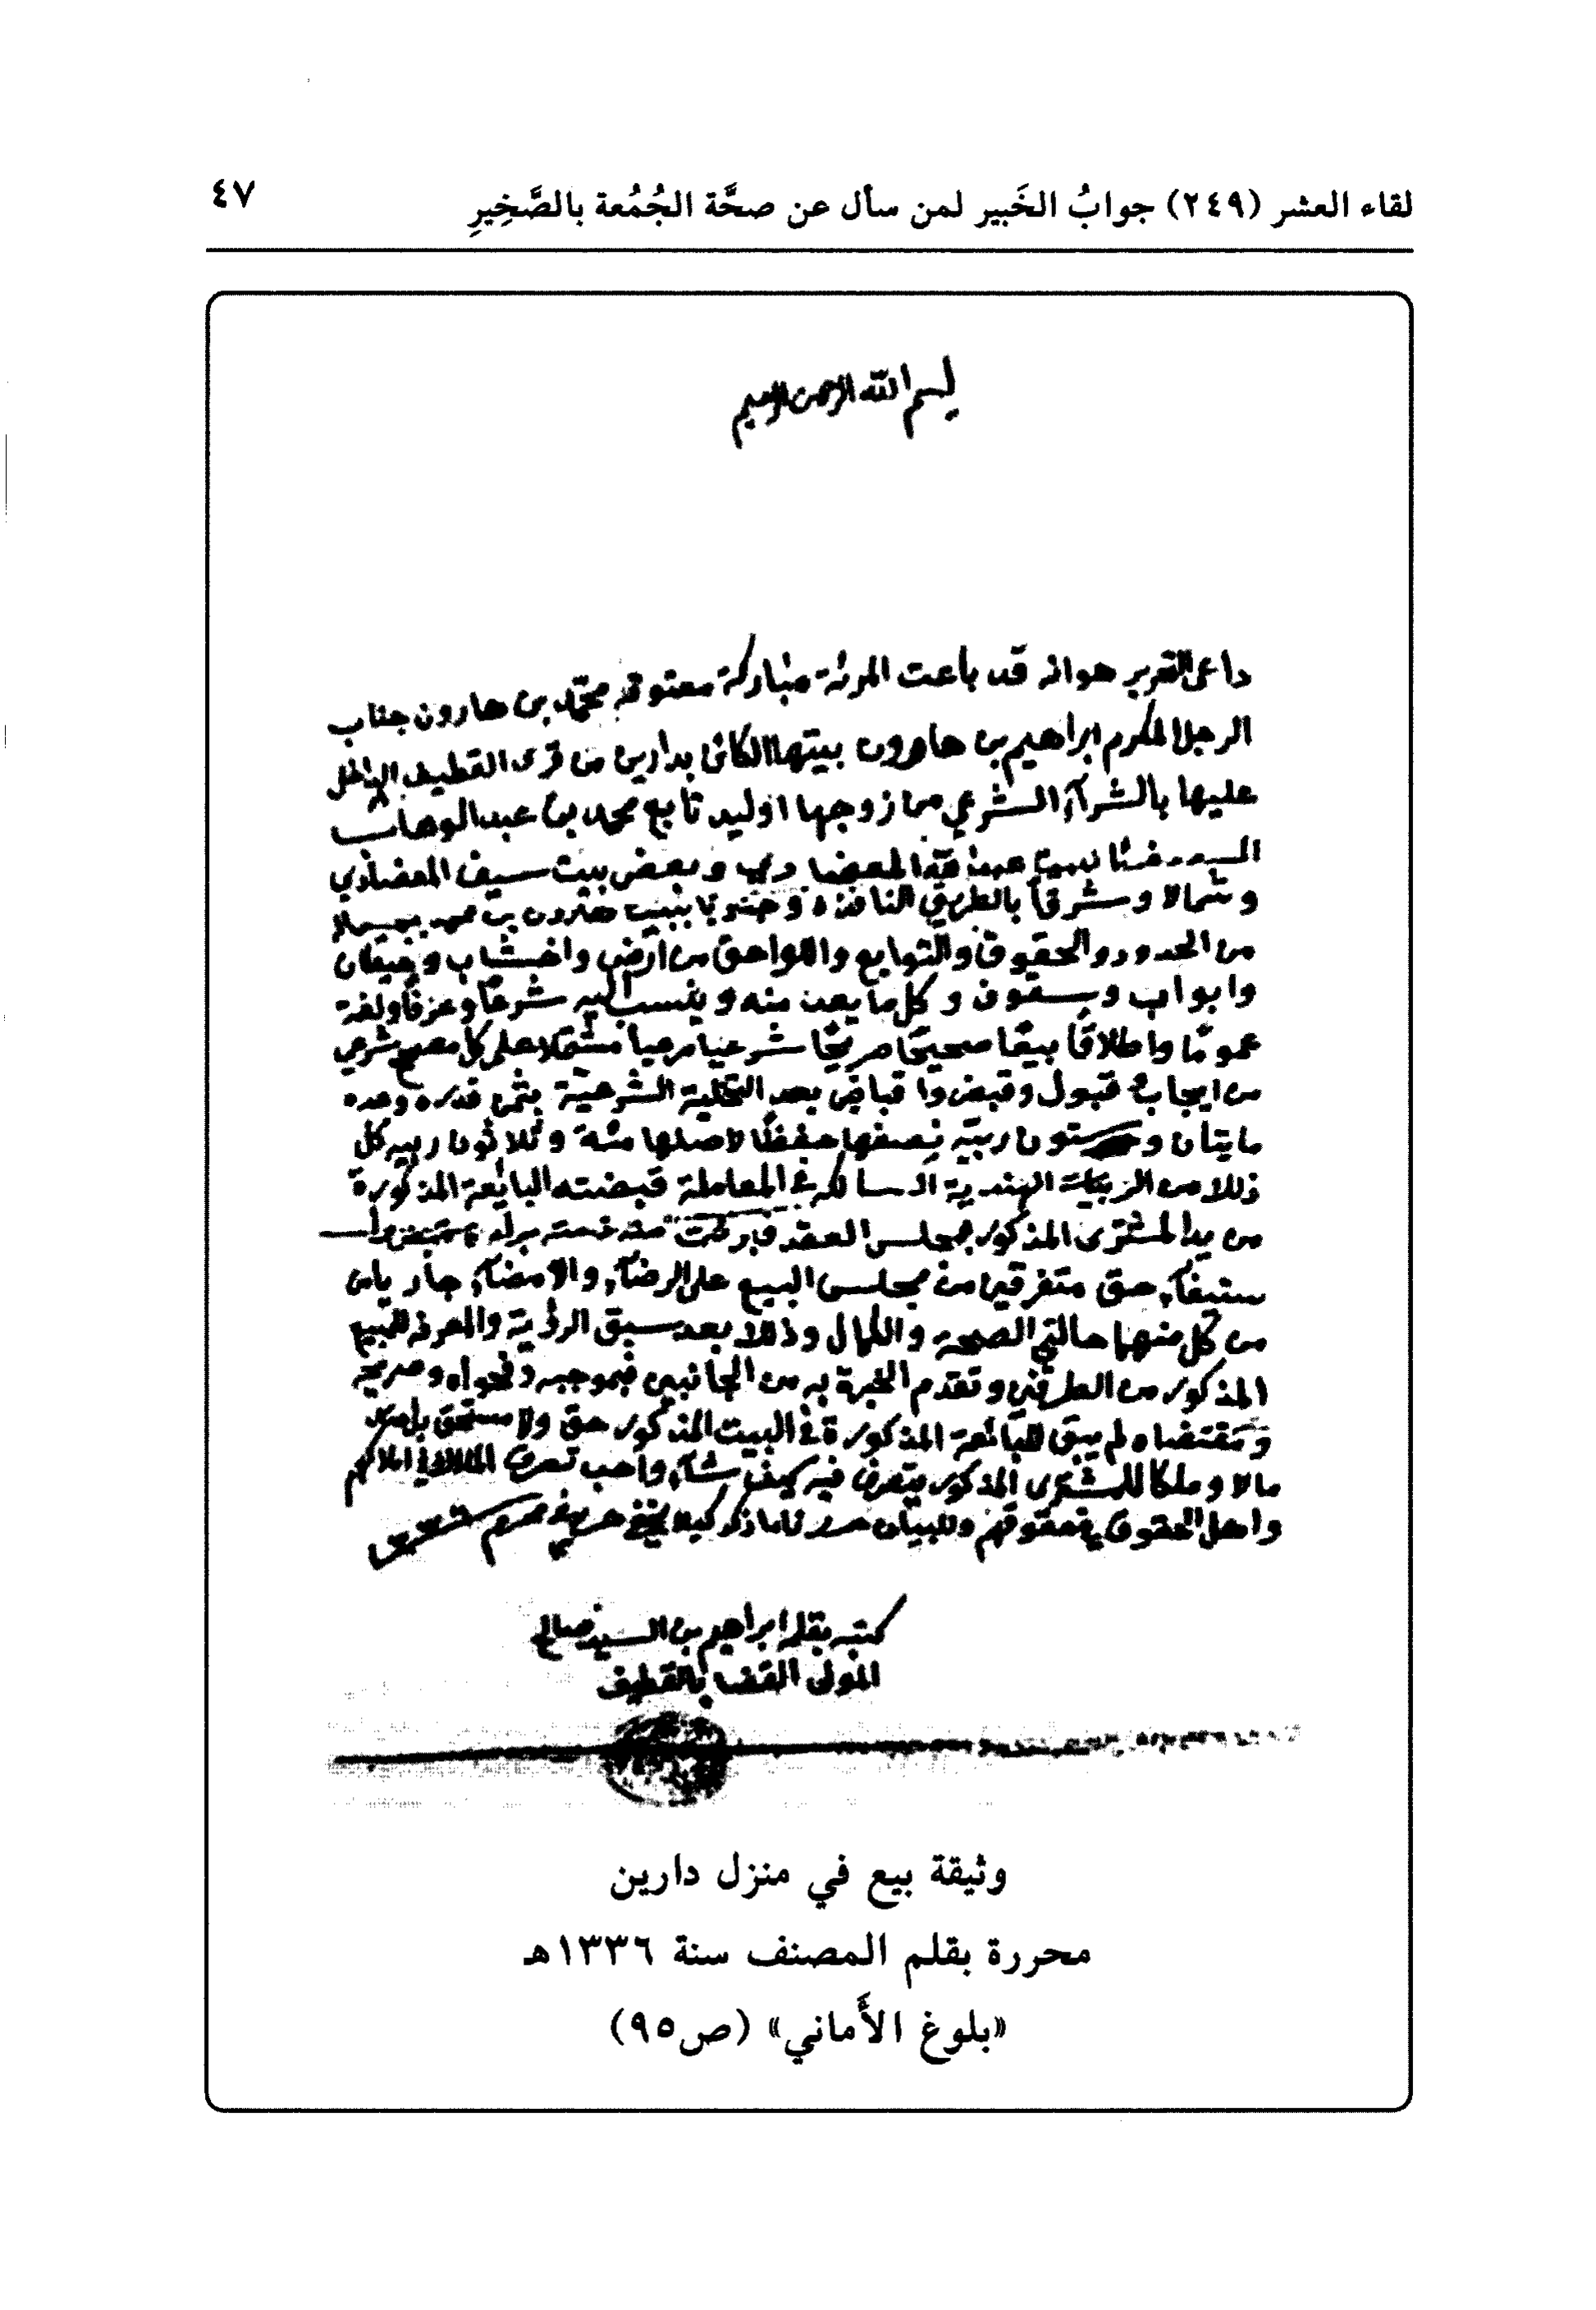 لقاء العشر (٢٤٩) جوابُ الخَبير لمن سأل عن صحَّة الجُمُعة بالصَّخِيرِ
٤٧
بسم الله الرحمن الرحيم
داعي التحرير هو انه قد باعت المرئة مباركة معتوقة محمد بن هارون جناب
الرجل المكرم ابراهيم بن هارون بيتها الكائن بدارين من قرى القطيف الداخل
عليها بالشرآء الشرعي من زوجها اوليد تابع محمد بن عبد الوهاب
المعضادي وبعض بيت سيف المعضادي
وشمالا وشرقاً بالطريق النافذة وجنوبا ببيت هارون بن
من الحدود والحقوق والتوابع واللواحق من ارض واخشاب وحيطان
وابواب وسقوف وكل ما يعد منه وينسب اليه شرعًا وعرفًا ولغة
عمومًا واطلاقًا بيعًا صحيحًا صريحًا شرعيا مرعياً مشتملا على كل مصحح شرعي
من ايجاب قبول وقبض واقباض بعد التخلية الشرعيّة بثمن قدره وعده
مايتان وستون ربيّه نصفها حفظًا لاصلها مئة وثلاثون ربيه كل
ذلك من الربيات الهندية السالكه في المعاملة قبضته البايعة المذكورة
من يد المشترى المذكور بمجلس العقد فبرئت منه ذمته برآءة قبض وا
ستيفآء حق متفرقين من مجلس البيع على الرضآء والامضآء جاريا من
من كل منهما حالتي الصحة والكمال وذلك بعد سبق الرؤية والمعرفة للمبيع
المذكور من الطرفين وتقدم الخبرة به من الجانبين فبموجبه وفحواه وصريحه
ومقتضاه لم يبق للبائعة المذكورة في البيت المذكور حق ولا مستحق بل صار
مالا وملكا للمشترى المذكور يتصرف فيه كيف شآء واحب تصرف الملاك في املاكهم
واهل الحقوق في حقوقهم وللبيان حرر ما ذكر كيلا يخفى
كتبه بقلمه ابراهيم بن السيد صالح
المولى القضا بالقطيف
وثيقة بيع في منزل دارين
محررة بقلم المصنف سنة ١٣٣٦هـ
«بلوغ الأَماني» (ص٩٥)